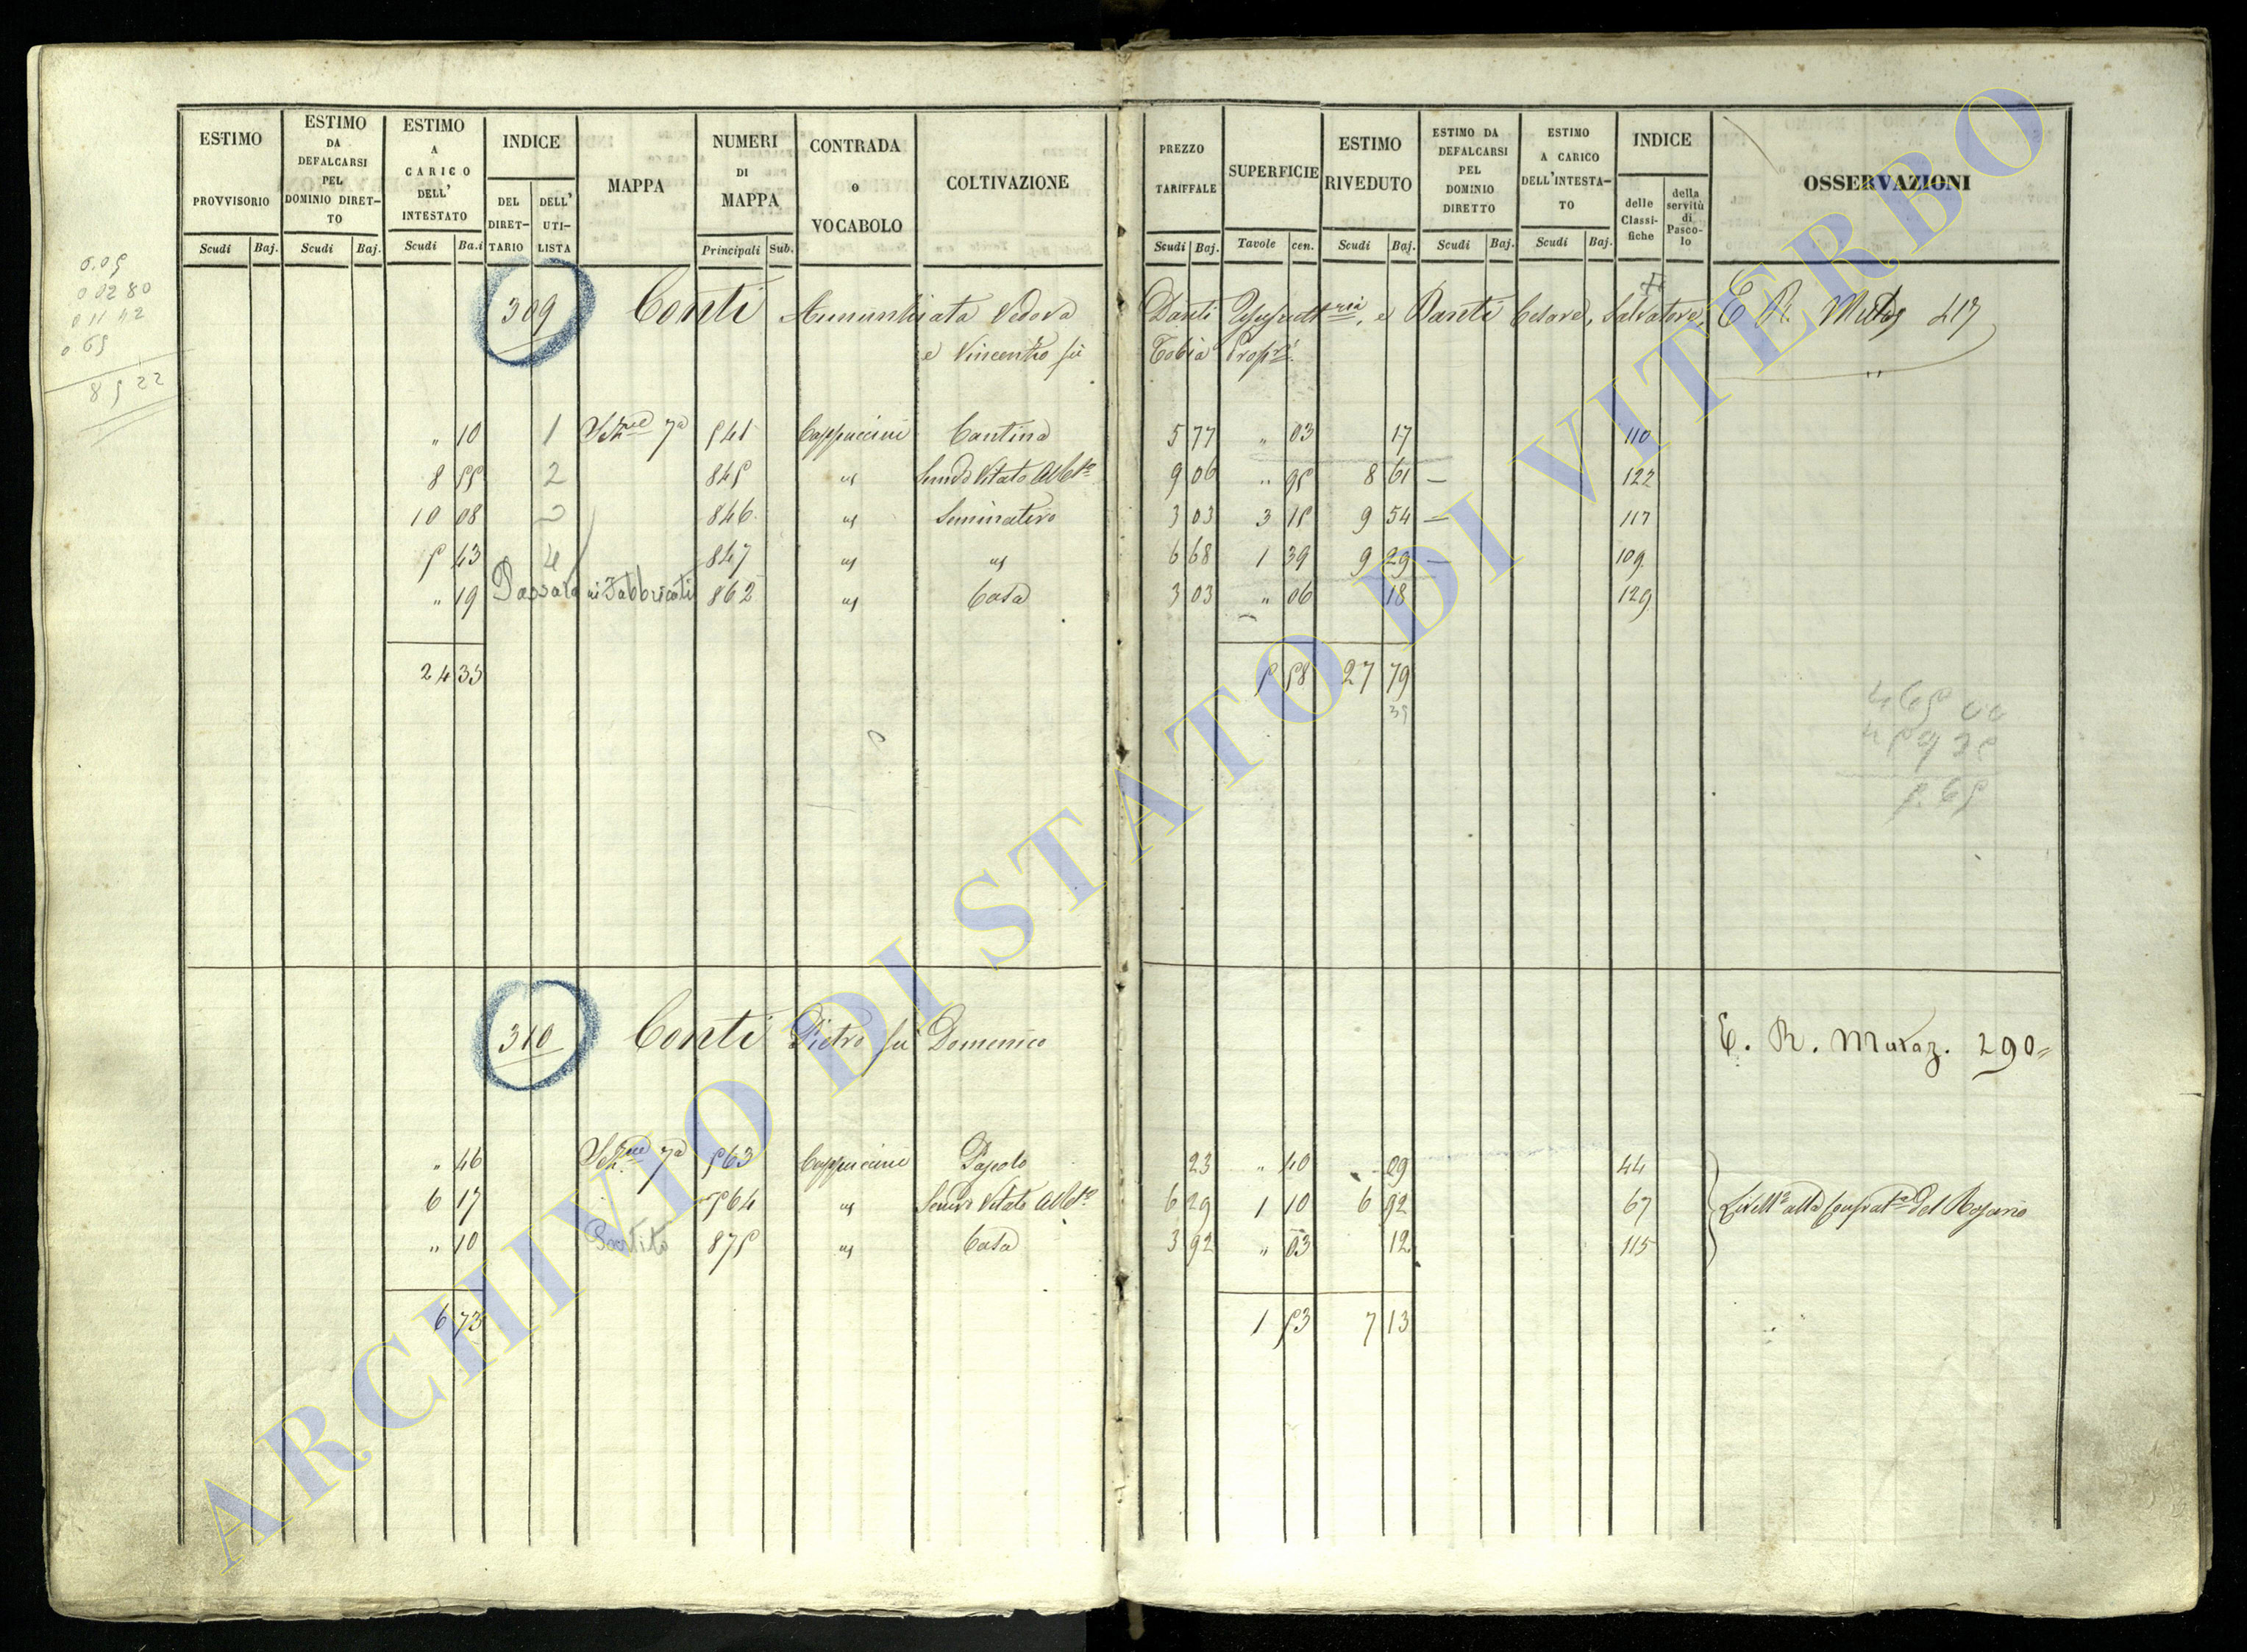 ESTIMO PROVVISORIO | ESTIMO DA DEFALCARSI PEL DOMINIO DIRETTO | ESTIMO A CARICO DELL' INTESTATO | INDICE DEL DIRETTARIO | DELL' UTILISTA | MAPPA | NUMERI DI MAPPA | CONTRADA o VOCABOLO | COLTIVAZIONE | PREZZO TARIFFALE | SUPERFICIE | ESTIMO RIVEDUTO | ESTIMO DA DEFALCARSI PEL DOMINIO DIRETTO | ESTIMO A CARICO DELL'INTESTATO | INDICE delle Classifiche | della servitù di Pascolo | OSSERVAZIONI
Scudi Baj. | Scudi Baj. | Scudi Ba.i | Principali Sub. | Scudi Baj. | Tavole cen. | Scudi Baj. | Scudi Baj. | Scudi Baj.
309 Conti Annunziata Vedova Danti e Danti Cesare, Salvatore, E R. 417
e Vincenzo fù Tobia Propri
" 10 1 Sez.ne 7a 541 Cappuccini Cantina 5 77 " 03 17 110
8 55 2 845 " Semvo Vitato Alb.to 9 06 " 95 8 61 — 122
10 08 3 846 " Seminativo 3 03 3 15 9 54 — 117
5 43 4 847 " " 6 68 1 39 9 29 — 109
" 19 Passata ai Fabbricati 862 " Casa 3 03 " 06 18 129
24 35 5 58 27 79
310 Conti Pietro fù Domenico E. R. 290
" 46 Sez.ne 7a 563 Cappuccini Pascolo 23 " 40 09 44
6 17 564 " Semvo Vitato Alb.to 6 29 1 10 6 92 67 del Rosario
" 10 Partito 875 " Casa 3 92 " 03 12 115
6 73 1 53 7 13
ARCHIVIO DI STATO DI VITERBO